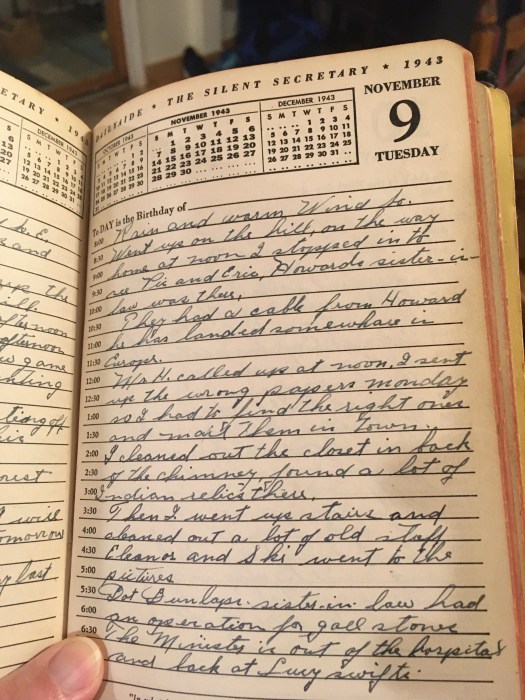 ETARY ★ 194
DECEMBER 1943
S
and
afternoon
game
tomorrow
last
★ THE SILENT SECRETARY ★ 1943
OCTOBER 1943
S M T W T F S
NOVEMBER 1943
S M T W T F S
1 2 3 4 5 6
7 8 9 10 11 12 13
14 15 16 17 18 19 20
21 22 23 24 25 26 27
28 29 30
DECEMBER 1943
S M T W T F S
1 2 3 4
5 6 7 8 9 10 11
12 13 14 15 16 17 18
19 20 21 22 23 24 25
26 27 28 29 30 31
NOVEMBER
9
TUESDAY
To DAY is the Birthday of
8:00 Rain and warm Wind So.
8:30 Went up on the hill, on the way
9:00 home at noon I stopped in to
9:30 see and Eric, Howards sister-in-
10:00 law was there,
10:30 They had a cable from Howard
11:00 he has landed somewhare in
11:30 Europe.
12:00 Mr H. called up at noon, I sent
12:30 up the wrong papers monday
1:00 so I had to find the right ones
1:30 and mail them in town.
2:00 I cleaned out the closet in back
2:30 of the chimney found a lot of
3:00 Indian relics there,
3:30 Then I went up stairs and
4:00 cleaned out a lot of old stuff
4:30 Eleanor and Ski went to the
5:00 pictures
5:30 Dot Dunlaps sister-in law had
6:00 an operation for gall stones
6:30 The Minister is out of the hospital
and back at Lucy swifts.